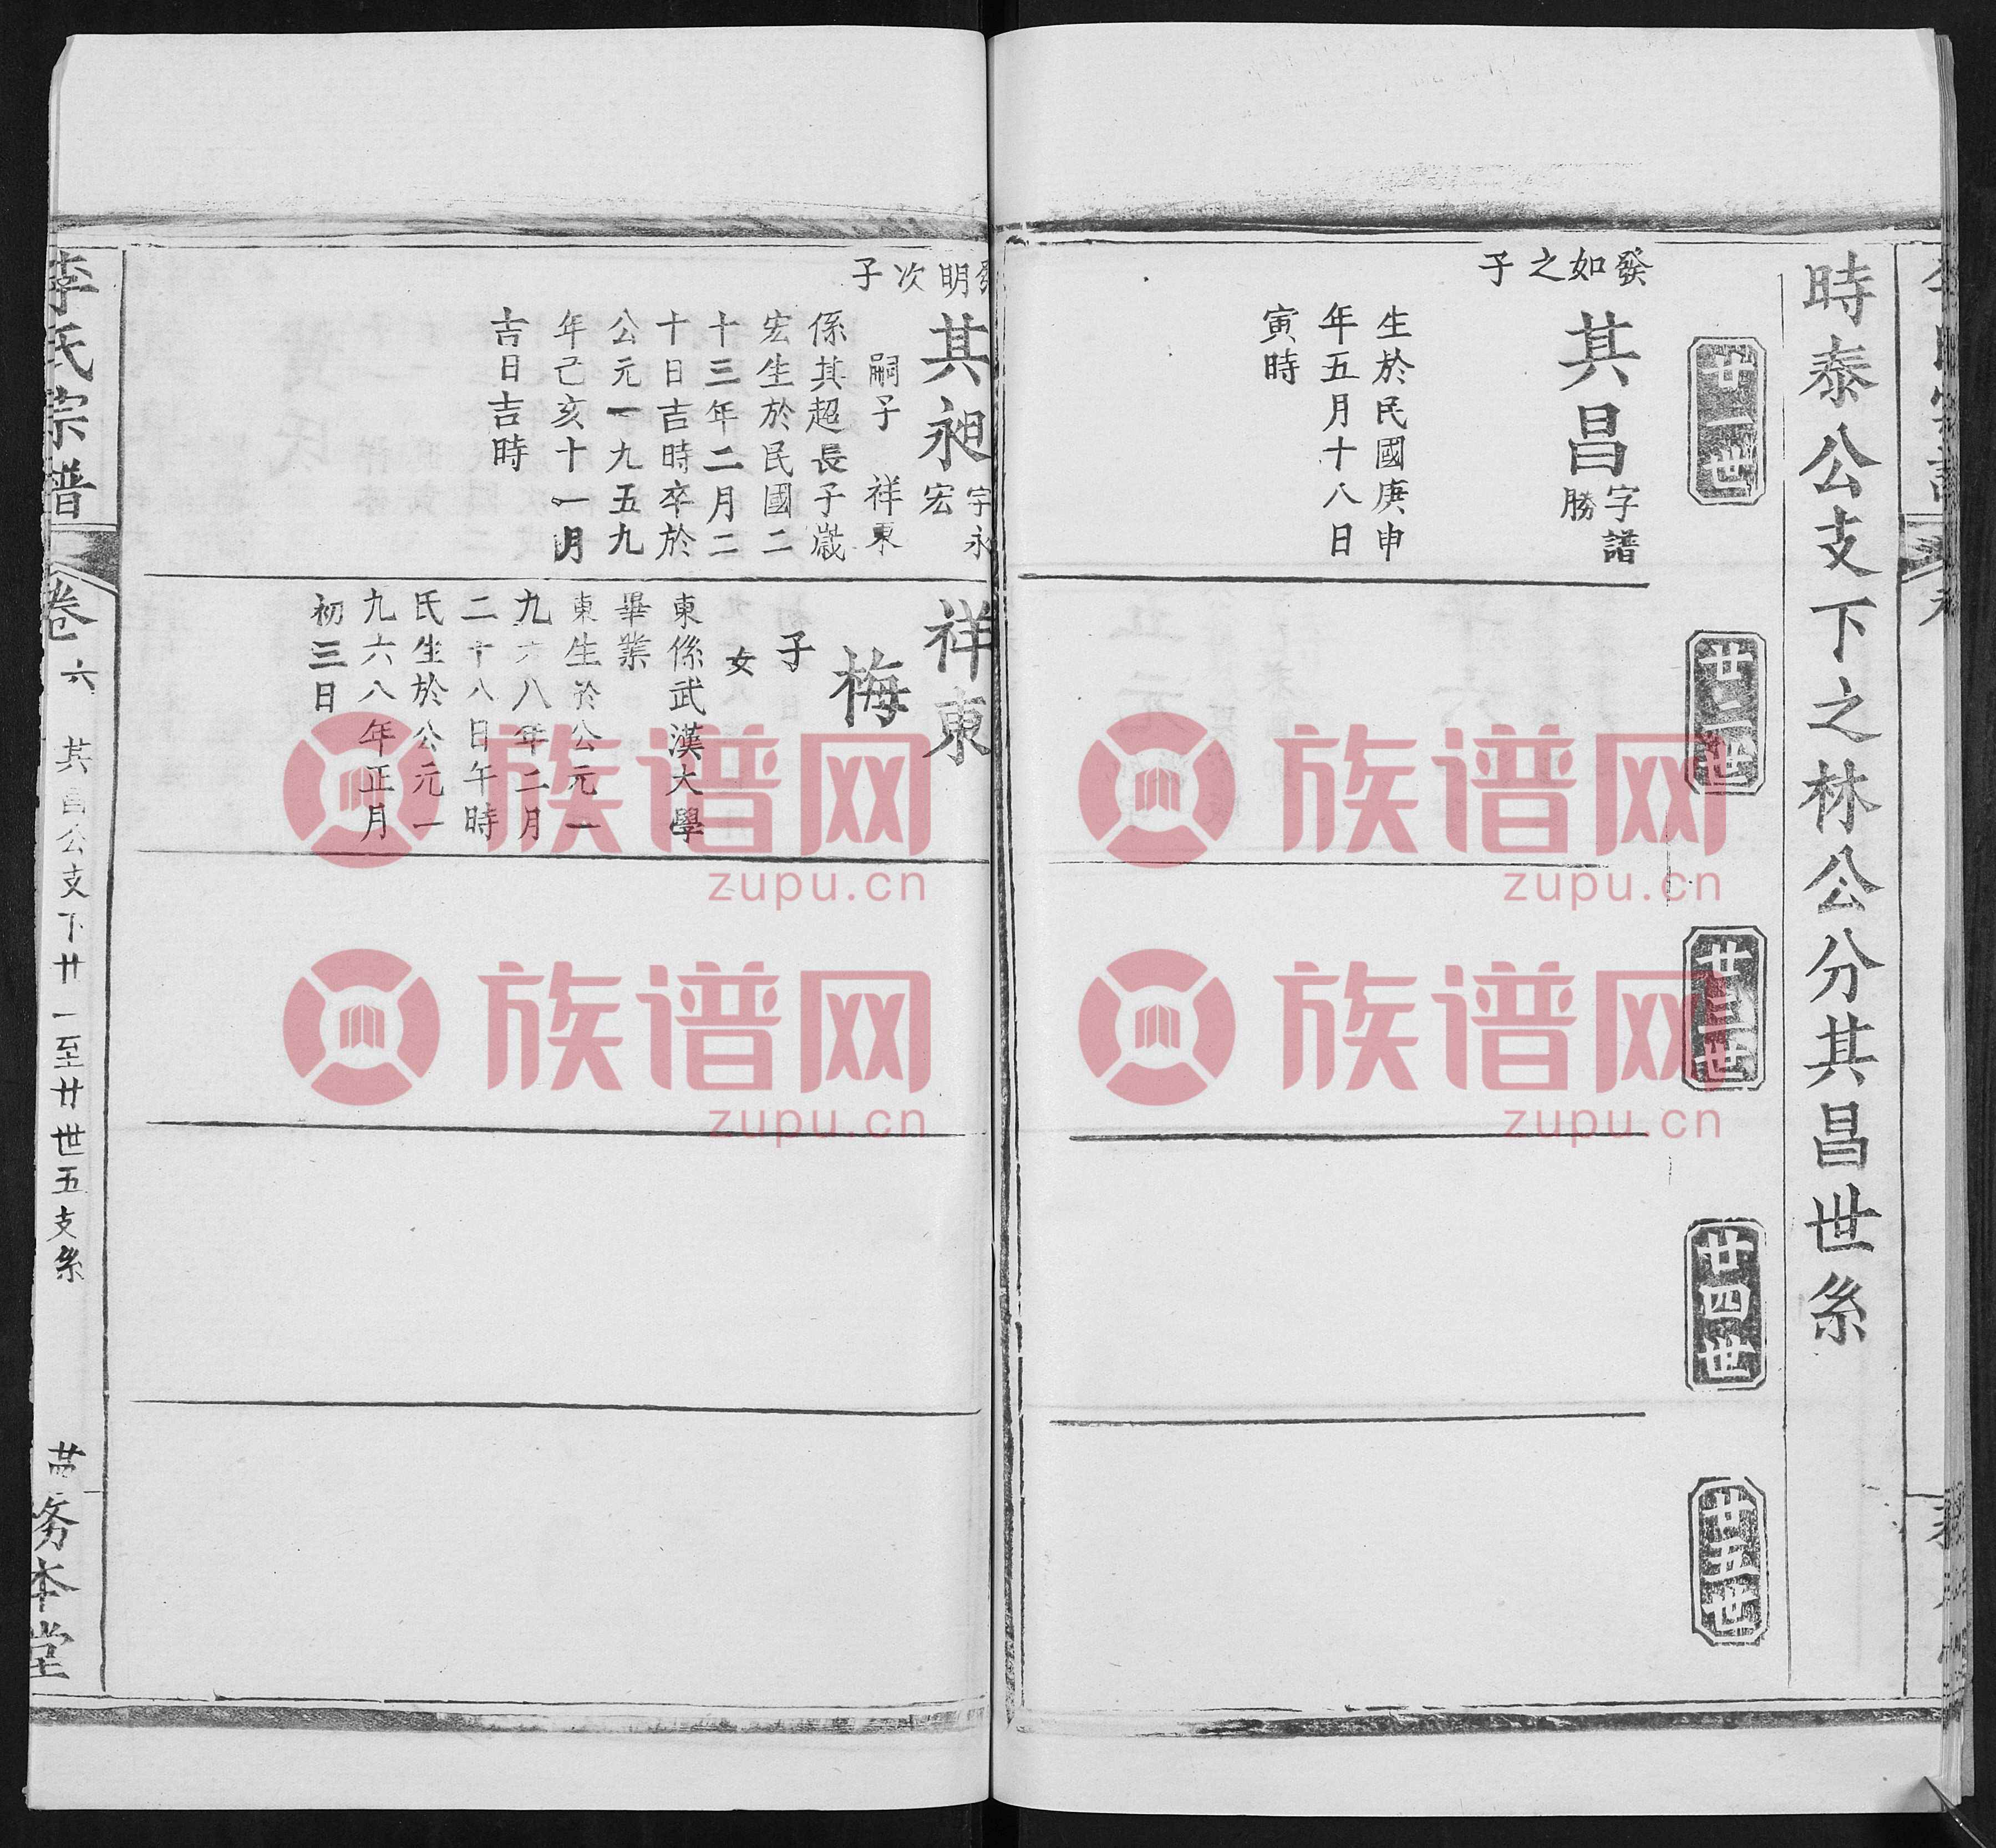 時泰公支下之林公分其昌世系
廿一世
廿二世
廿三世
廿四世
廿五世
發如之子
其昌
字譜
勝
生於民國庚申
年五月十八日
寅時
發明次子
其昶
字永
宏
嗣子 祥東
係其超長子歲
宏生於民國二
十三年二月二
十日吉時卒於
公元一九五九
年己亥十一月
吉日吉時
祥東
梅
子
女
東係武漢大學
畢業
東生於公元一
九六八年二月
二十八日午時
氏生於公元一
九六八年正月
初三日
李氏宗譜
卷六
其昌公支下廿一至廿世五支系
务本堂
族谱网
zupu.cn
族谱网
zupu.cn
族谱网
zupu.cn
族谱网
zupu.cn